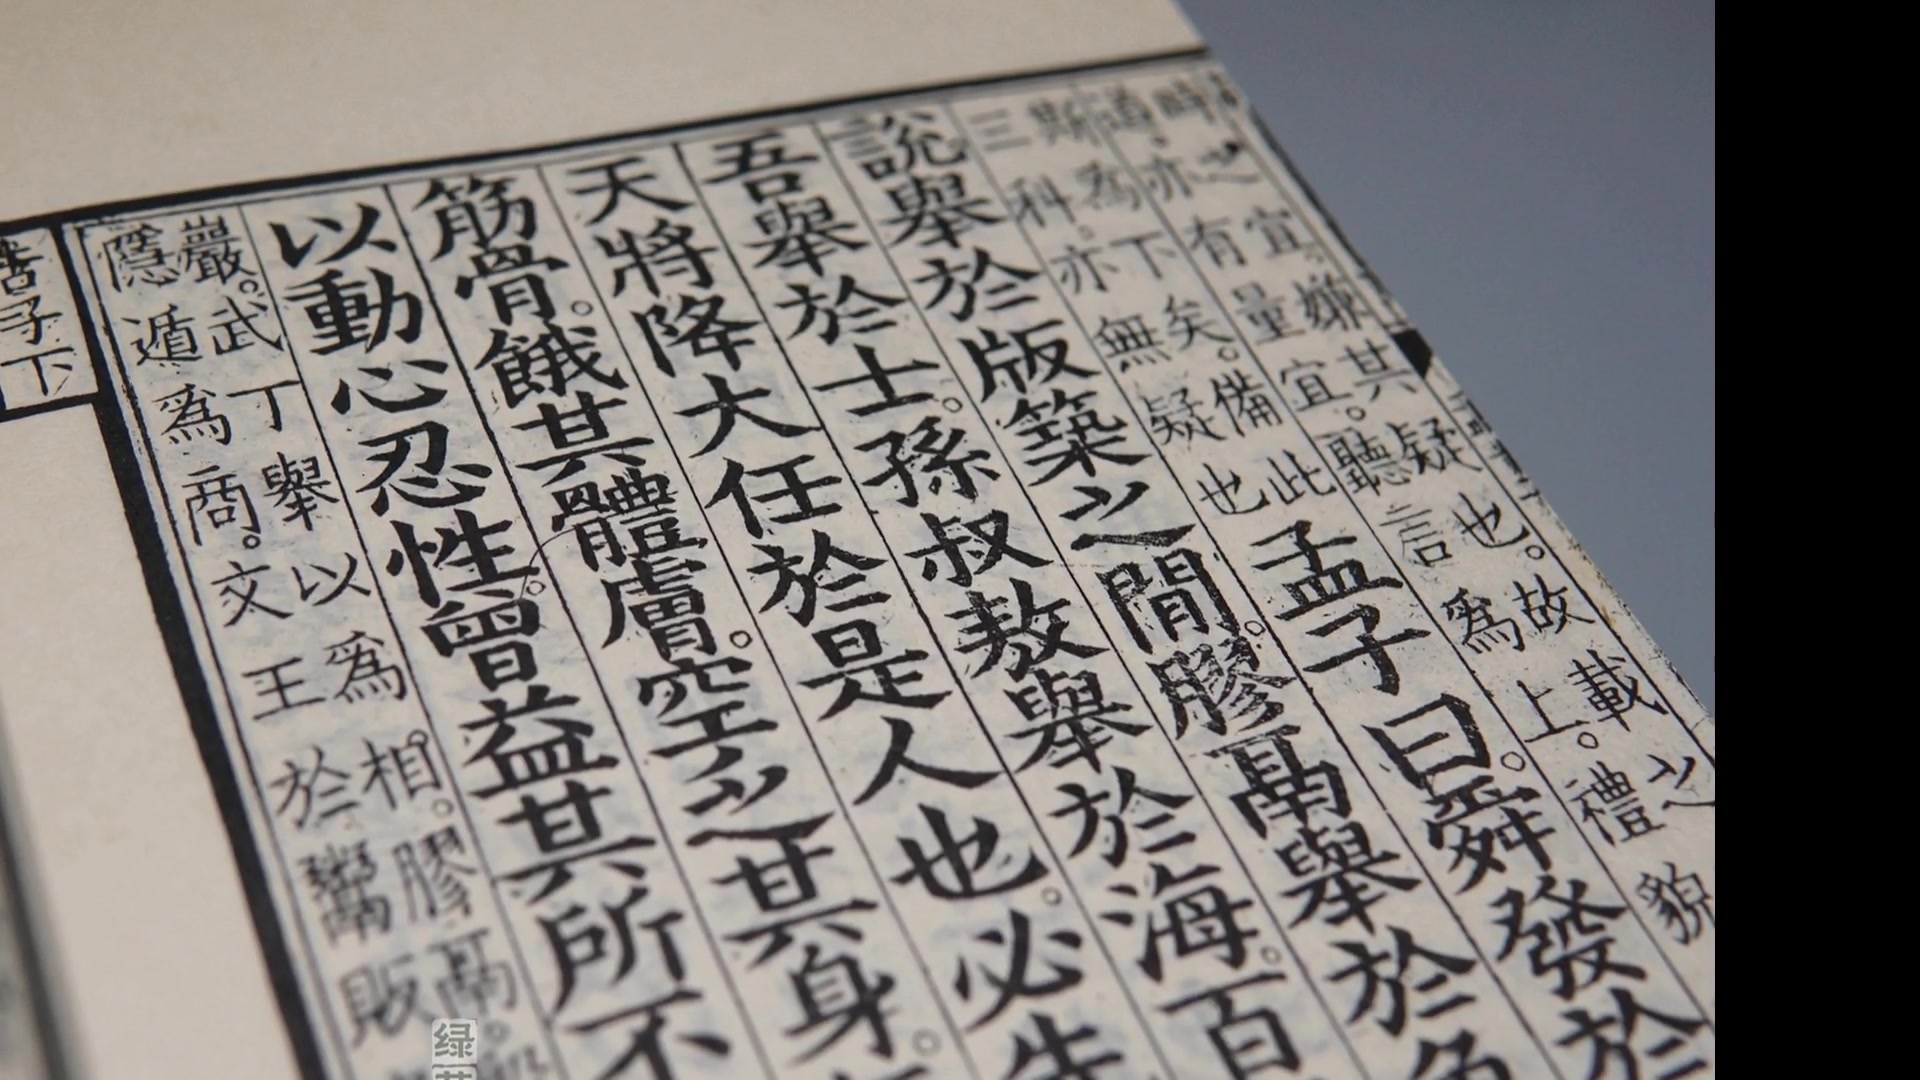 時之宜。嫌其疑也。故載之
道亦有量宜。聽言爲上。禮貌
斯為下矣。備此
三科。亦無疑也
孟子曰。舜發於
說舉於版築之閒。膠鬲舉於魚
吾舉於士。孫叔敖舉於海。百
天將降大任於是人也。必先
筋骨。餓其體膚。空乏其身。
以動心忍性。曾益其所不
巖。武丁舉以爲相。膠鬲。
隱遁爲商。文王於鬻販
告子下
绿